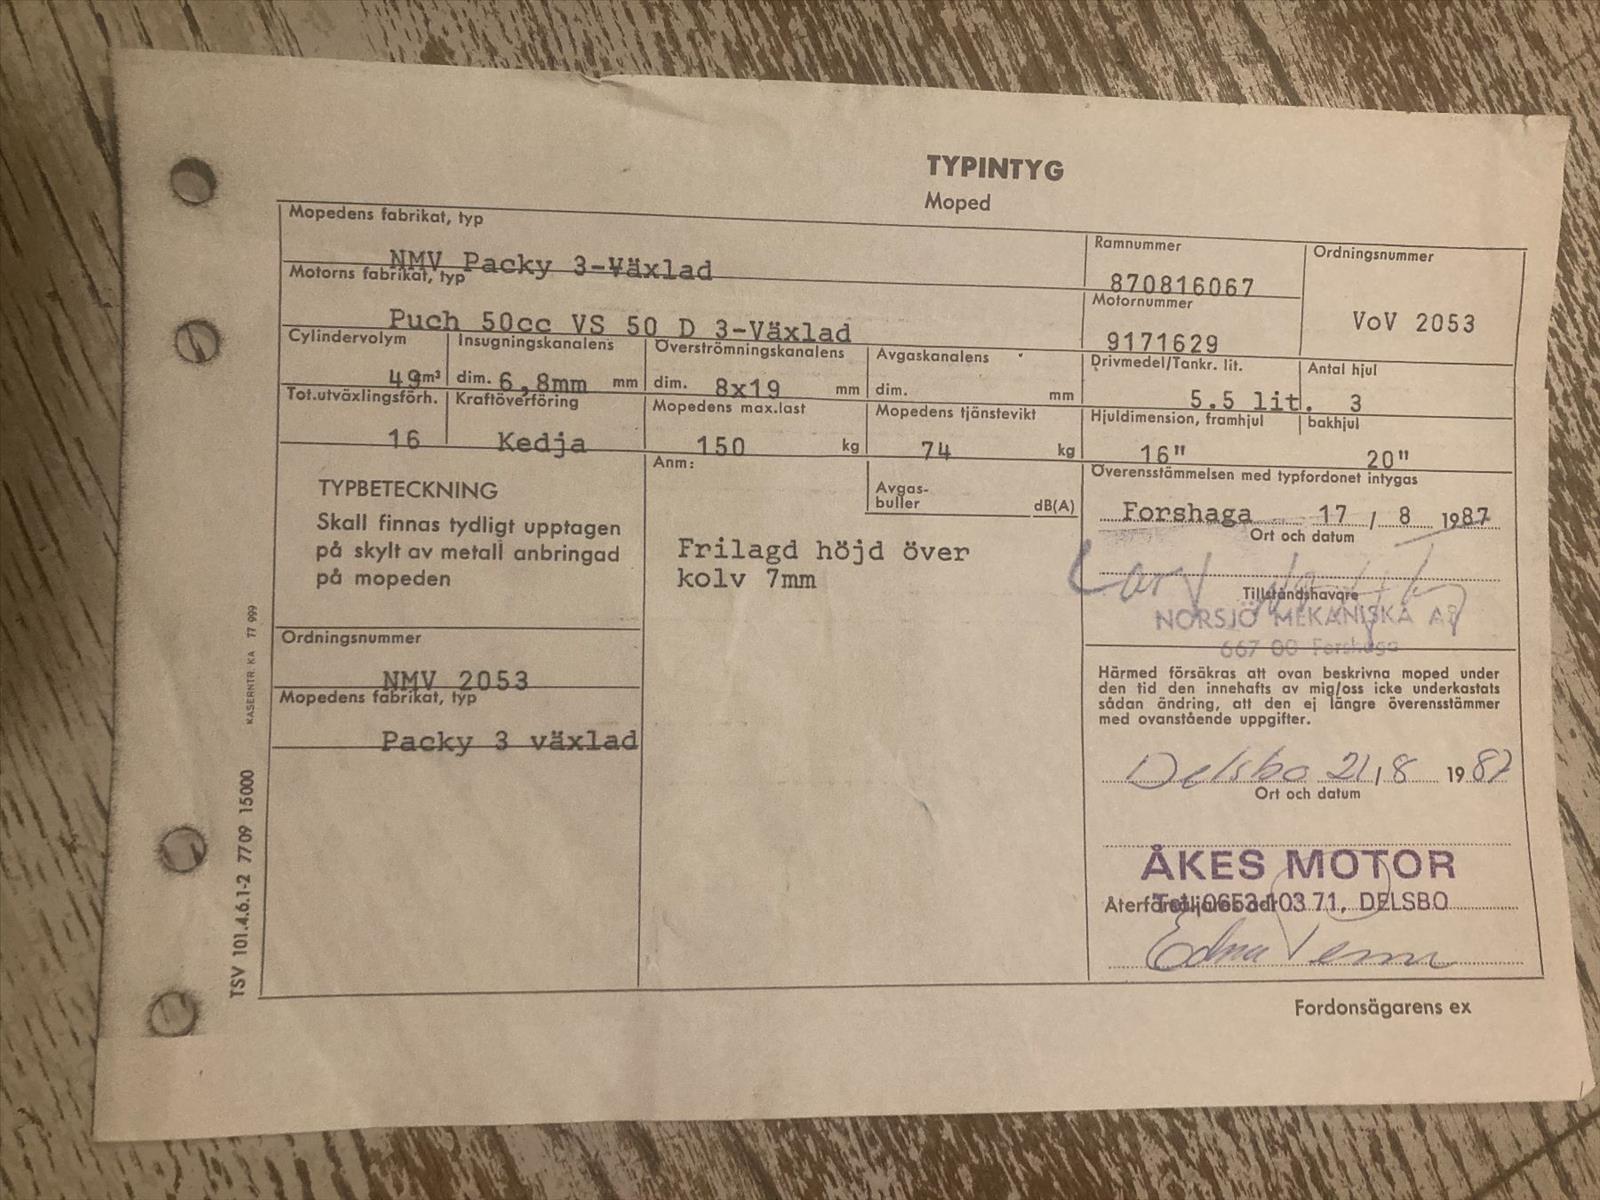 TYPINTYG
Moped
Mopedens fabrikat, typ
NMV Packy 3-Växlad
Ramnummer
870816067
Ordningsnummer
VoV 2053
Motorns fabrikat, typ
Puch 50cc VS 50 D 3-Växlad
Motornummer
9171629
Cylindervolym
49m³
Insugningskanalens
dim. 6,8mm mm
Överströmningskanalens
dim. 8x19 mm
Avgaskanalens
dim. mm
Drivmedel/Tankr. lit.
5.5 lit.
Antal hjul
3
Tot.utväxlingsförh.
16
Kraftöverföring
Kedja
Mopedens max.last
150 kg
Mopedens tjänstevikt
74 kg
Hjuldimension, framhjul
16"
bakhjul
20"
TYPBETECKNING
Skall finnas tydligt upptagen
på skylt av metall anbringad
på mopeden
Anm:
Frilagd höjd över
kolv 7mm
Avgas-
buller dB(A)
Överensstämmelsen med typfordonet intygas
Forshaga 17 / 8 1987
Ort och datum
Tillståndshavare
NORSJÖ MEKANISKA AB
667 00 Forshaga
Ordningsnummer
NMV 2053
Mopedens fabrikat, typ
Packy 3 växlad
Härmed försäkras att ovan beskrivna moped under
den tid den innehafts av mig/oss icke underkastats
sådan ändring, att den ej längre överensstämmer
med ovanstående uppgifter.
Delsbo 21/8 1987
Ort och datum
ÅKES MOTOR
Tel. 0653-103 71, DELSBO
Edna
Fordonsägarens ex
TSV 101.4.6.1-2 7709 15000
KASERNTR. KA 77 999